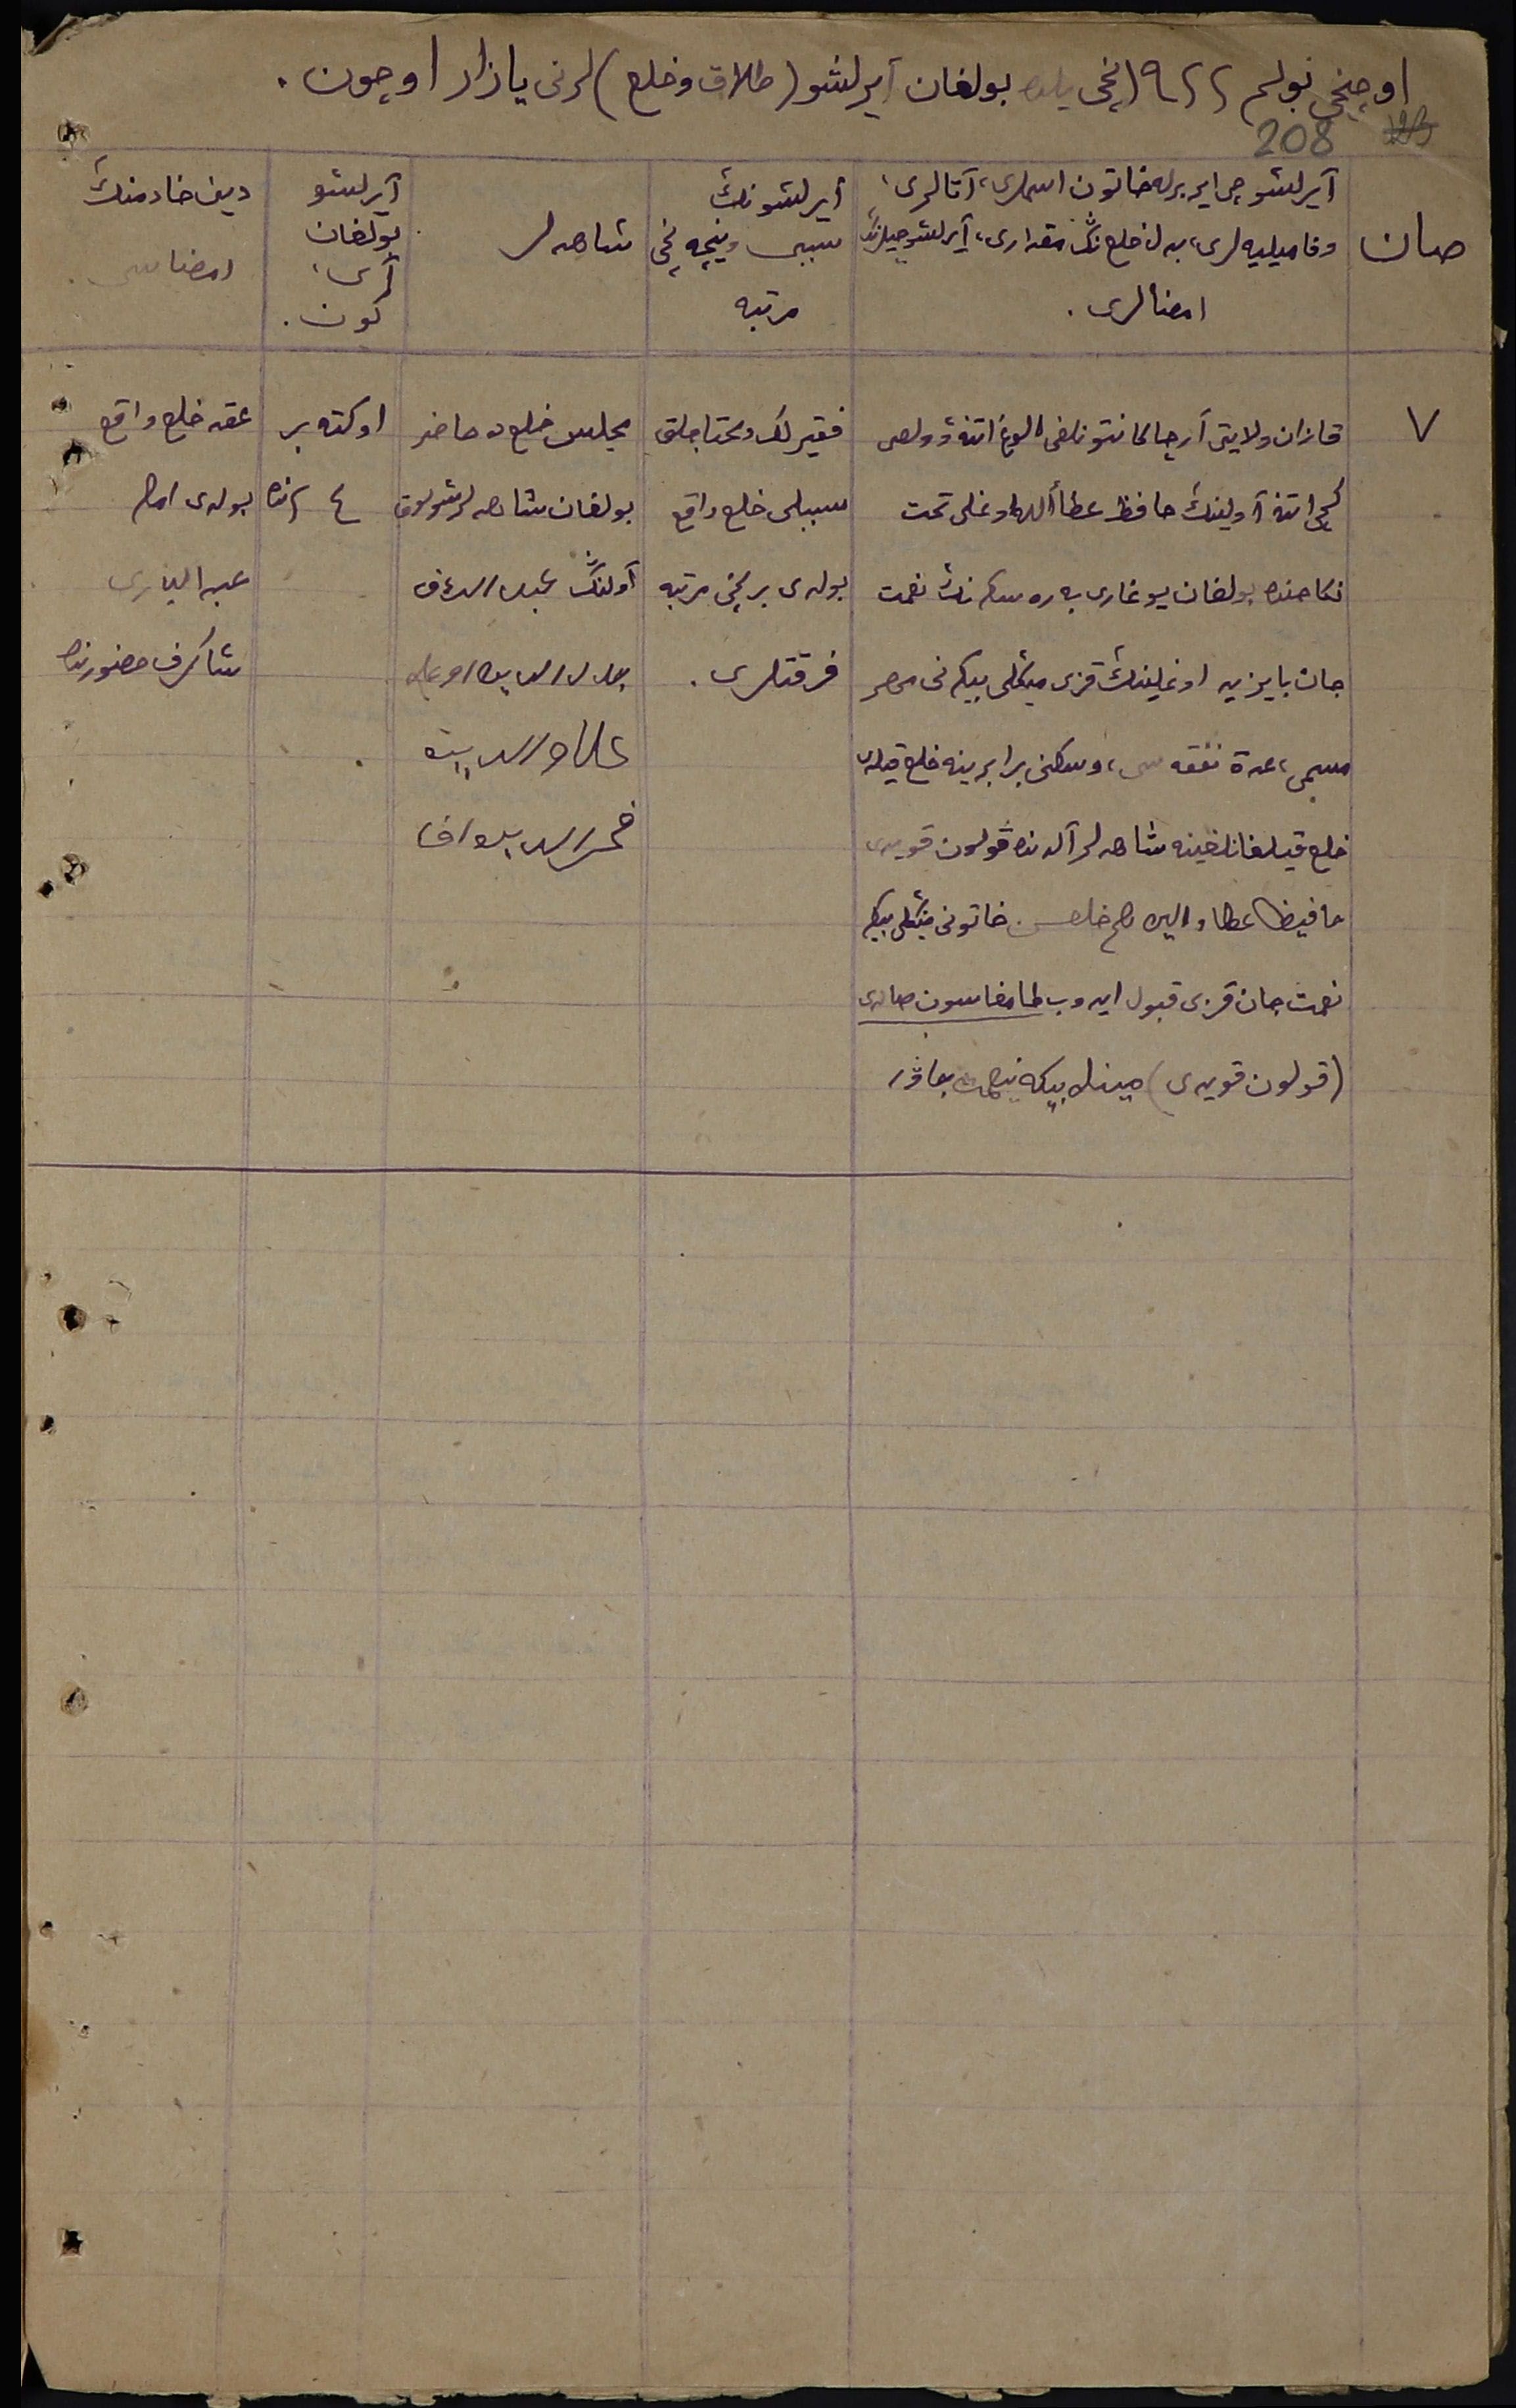 اوچنچی بولم ١٩٢٢ نچی یلده بولغان آیرلشو (طلاق وخلع) لرنی یازار اوچون.
208
صان
آیرلشوچی ایر برله خاتون اسملری، آتالری،
وفامیلیه لری، بدل خلع نڭ مقداری، آیرلشوچیلرنڭ
امضالری.
آیرلشونڭ
سببی ونیچه نچی
مرتبه
شاهدلر
آیرلشو
بولغان
آی،
کون.
دین خادمنڭ
امضاسی.
٧
قازان ولایتی آرچا کانتونلغی الوغ اتنه وولصی
کچی اتنه آولینڭ حافظ عطأالله اوغلی تحت
نکاحنده بولغان یوغاری بەرەسکە نڭ نعمت
جان بایزید اوغلینڭ قزی مینگلی بیکه نی مهر
مسمی، عدة نفقه سی، وسکنی برابرینه خلع قیلدی
خلع قیلغانلغینه شاهدلر آلدنده قولون قویدی
حافیظ عطا
خاتونی مینگلی بیکه
نعمت جان قزی قبول ایدوب طامغاسون صالدی
(قولون قویدی)
فقیرلک ومحتاجلق
سببلی خلع واقع
بولدی برنچی مرتبه
فرقتلری.
مجلس خلع ده حاضر
بولغان شاهدلر شولوق
آولنڭ
اوکتەبر
٢٤ نده
عقد خلع واقع
بولدی امام
عبد الباری
شاکرف حضورنده